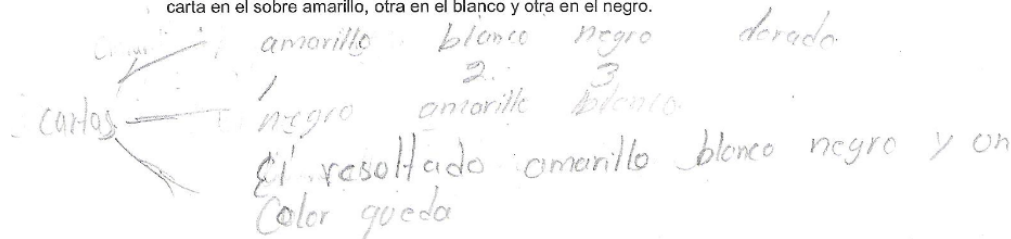 carta en el sobre amarillo, otra en el blanco y otra en el negro.
amarillo blanco negro dorado
1 2. 3
cartas negro amarillo blanco
El resoltado amarillo blanco negro y on
Color queda